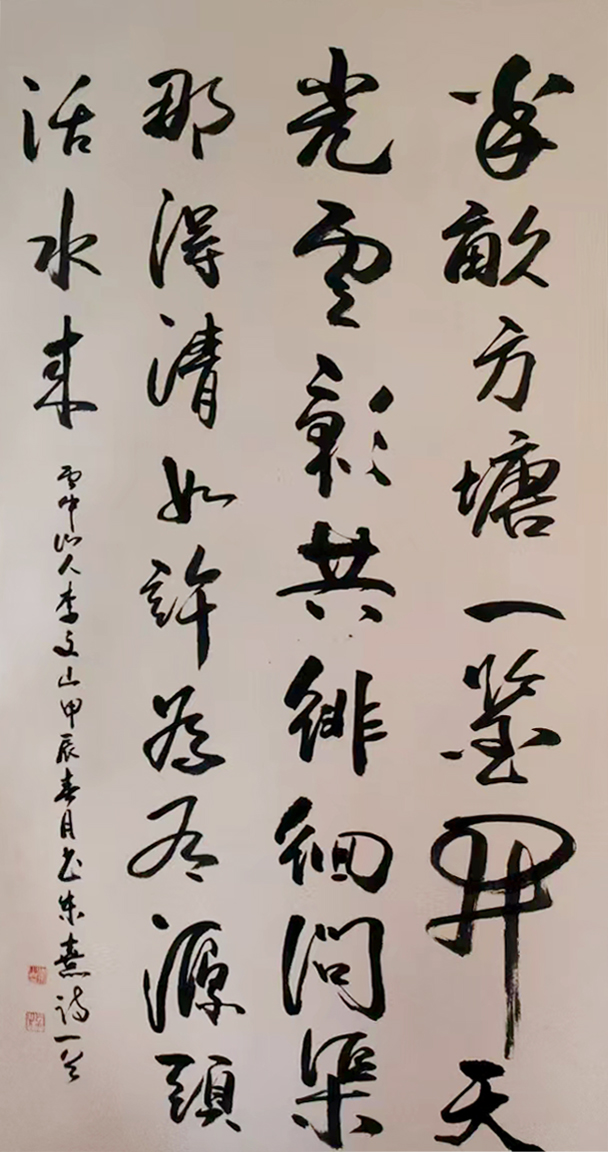 半畝方塘一鉴開天
光雲影共徘徊問渠
那得清如許為有源頭
活水来
雲中山人李文山甲辰春月书朱熹诗一首